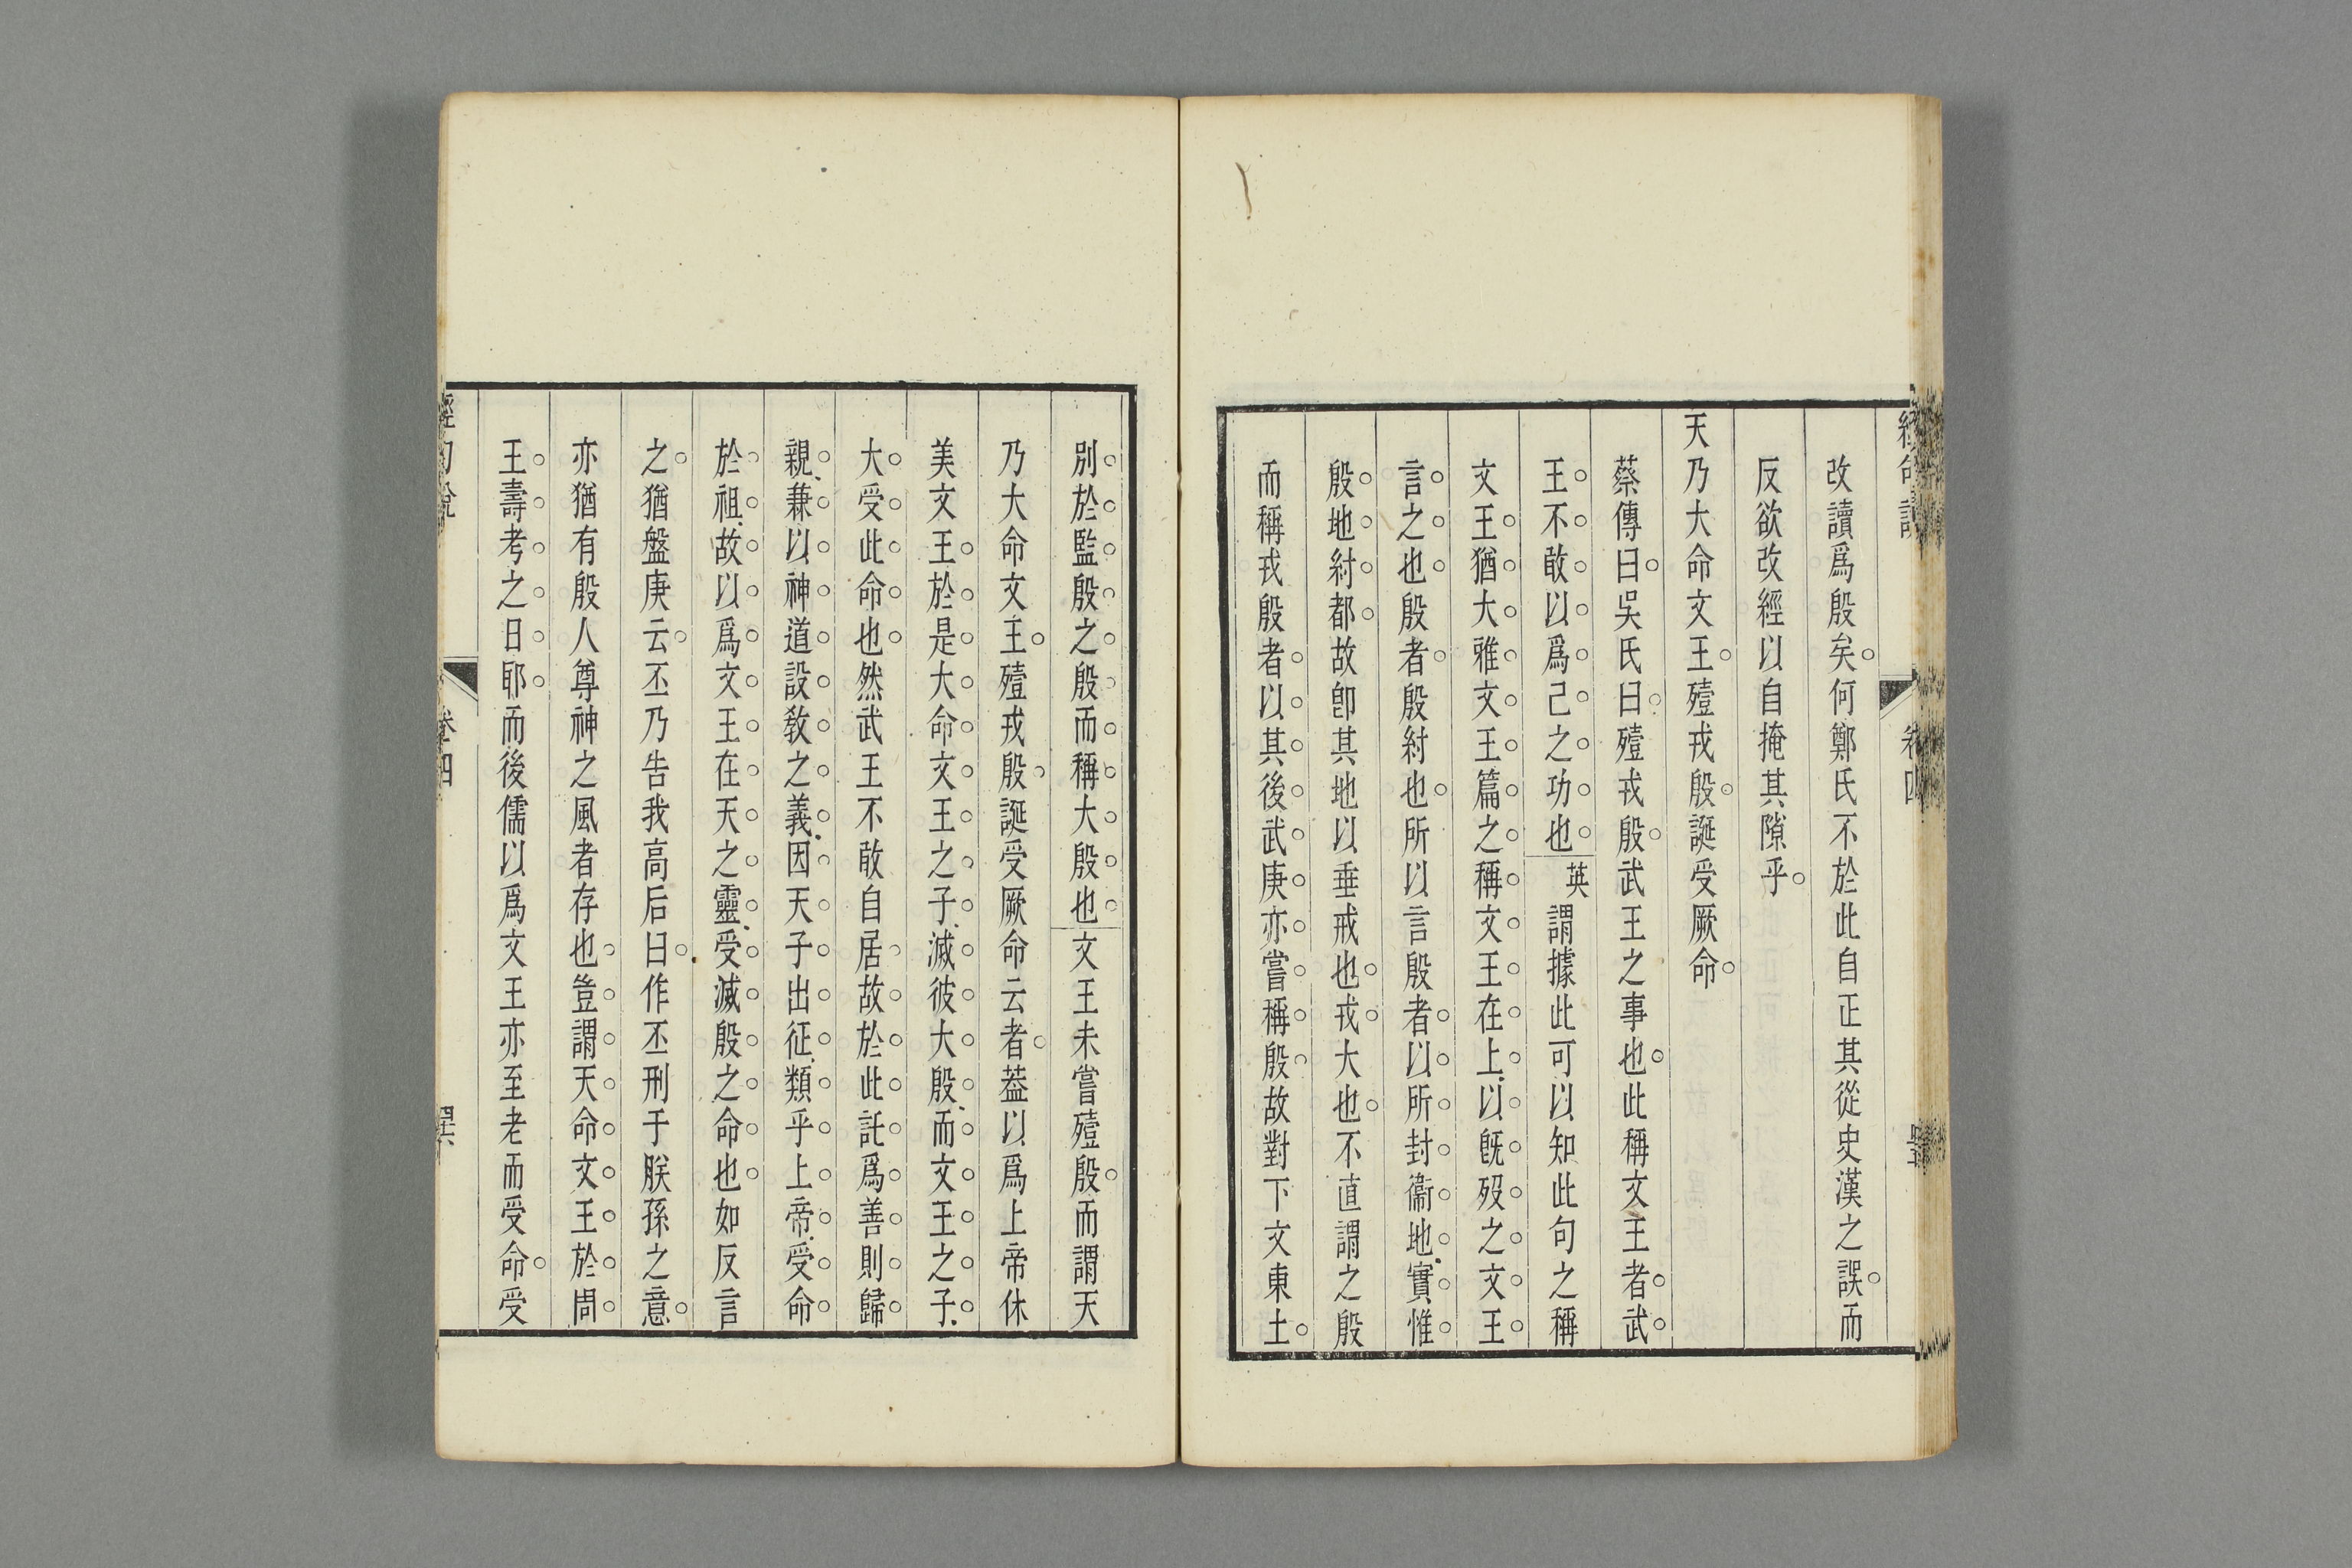 改讀爲殷矣何鄭氏不於此自正其從史漢之誤而
反欲改經以自掩其隙乎
天乃大命文王殪戎殷誕受厥命
蔡傳曰吳氏曰殪戎殷武王之事也此稱文王者武
王不敢以爲己之功也英謂據此可以知此句之稱
文王猶大雅文王篇之稱文王在上以旣歿之文王
言之也殷者殷紂也所以言殷者以所封衞地實惟
殷地紂都故卽其地以垂戒也戎大也不直謂之殷
而稱戎殷者以其後武庚亦嘗稱殷故對下文東土
別於監殷之殷而稱大殷也文王未嘗殪殷而謂天
乃大命文王殪戎殷誕受厥命云者葢以爲上帝休
美文王於是大命文王之子滅彼大殷而文王之子
大受此命也然武王不敢自居故於此託爲善則歸
親兼以神道設敎之義因天子出征類乎上帝受命
於祖故以爲文王在天之靈受滅殷之命也如反言
之猶盤庚云丕乃告我高后曰作丕刑于朕孫之意
亦猶有殷人尊神之風者存也豈謂天命文王於周
王壽考之日耶而後儒以爲文王亦至老而受命受
卷四